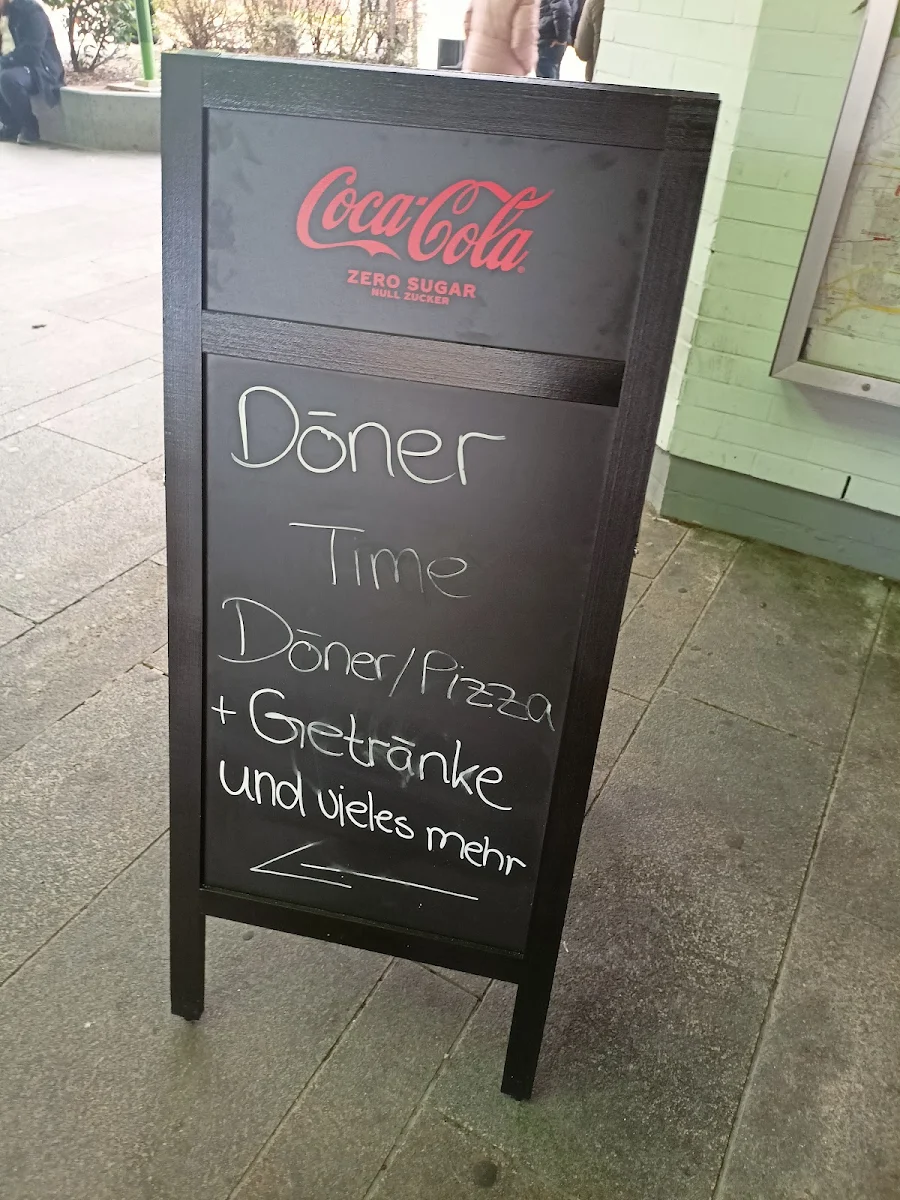 Coca-Cola
ZERO SUGAR
NULL ZUCKER
Döner
Time
Döner/Pizza
+ Getränke
und vieles mehr